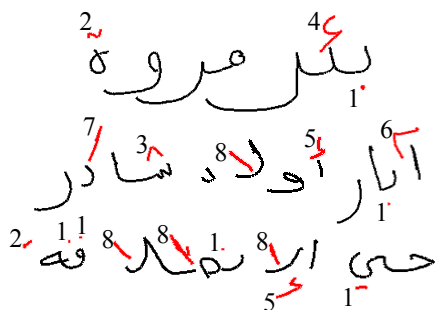 2 4
بئر مروة
1
7 3 8 5 6
آبار أولاد شاكر
1
2 1 1 8 8 1 8
حي الإنطلاقة
5 1